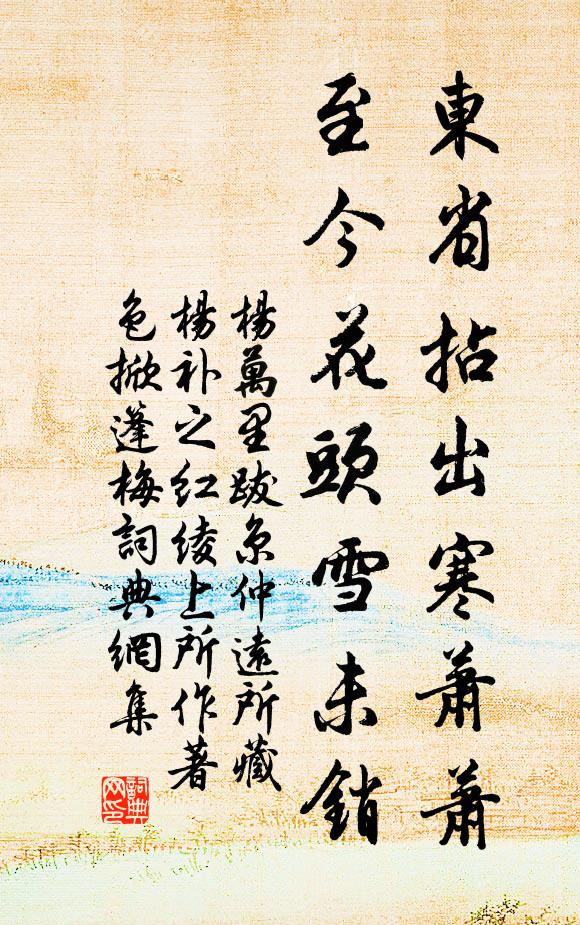 東省拈出寒萧萧
至今花頭雪未銷
楊萬里跋京仲遠所藏
楊补之红绫上所作著
色掀蓬梅詞典網集
詞典
网印